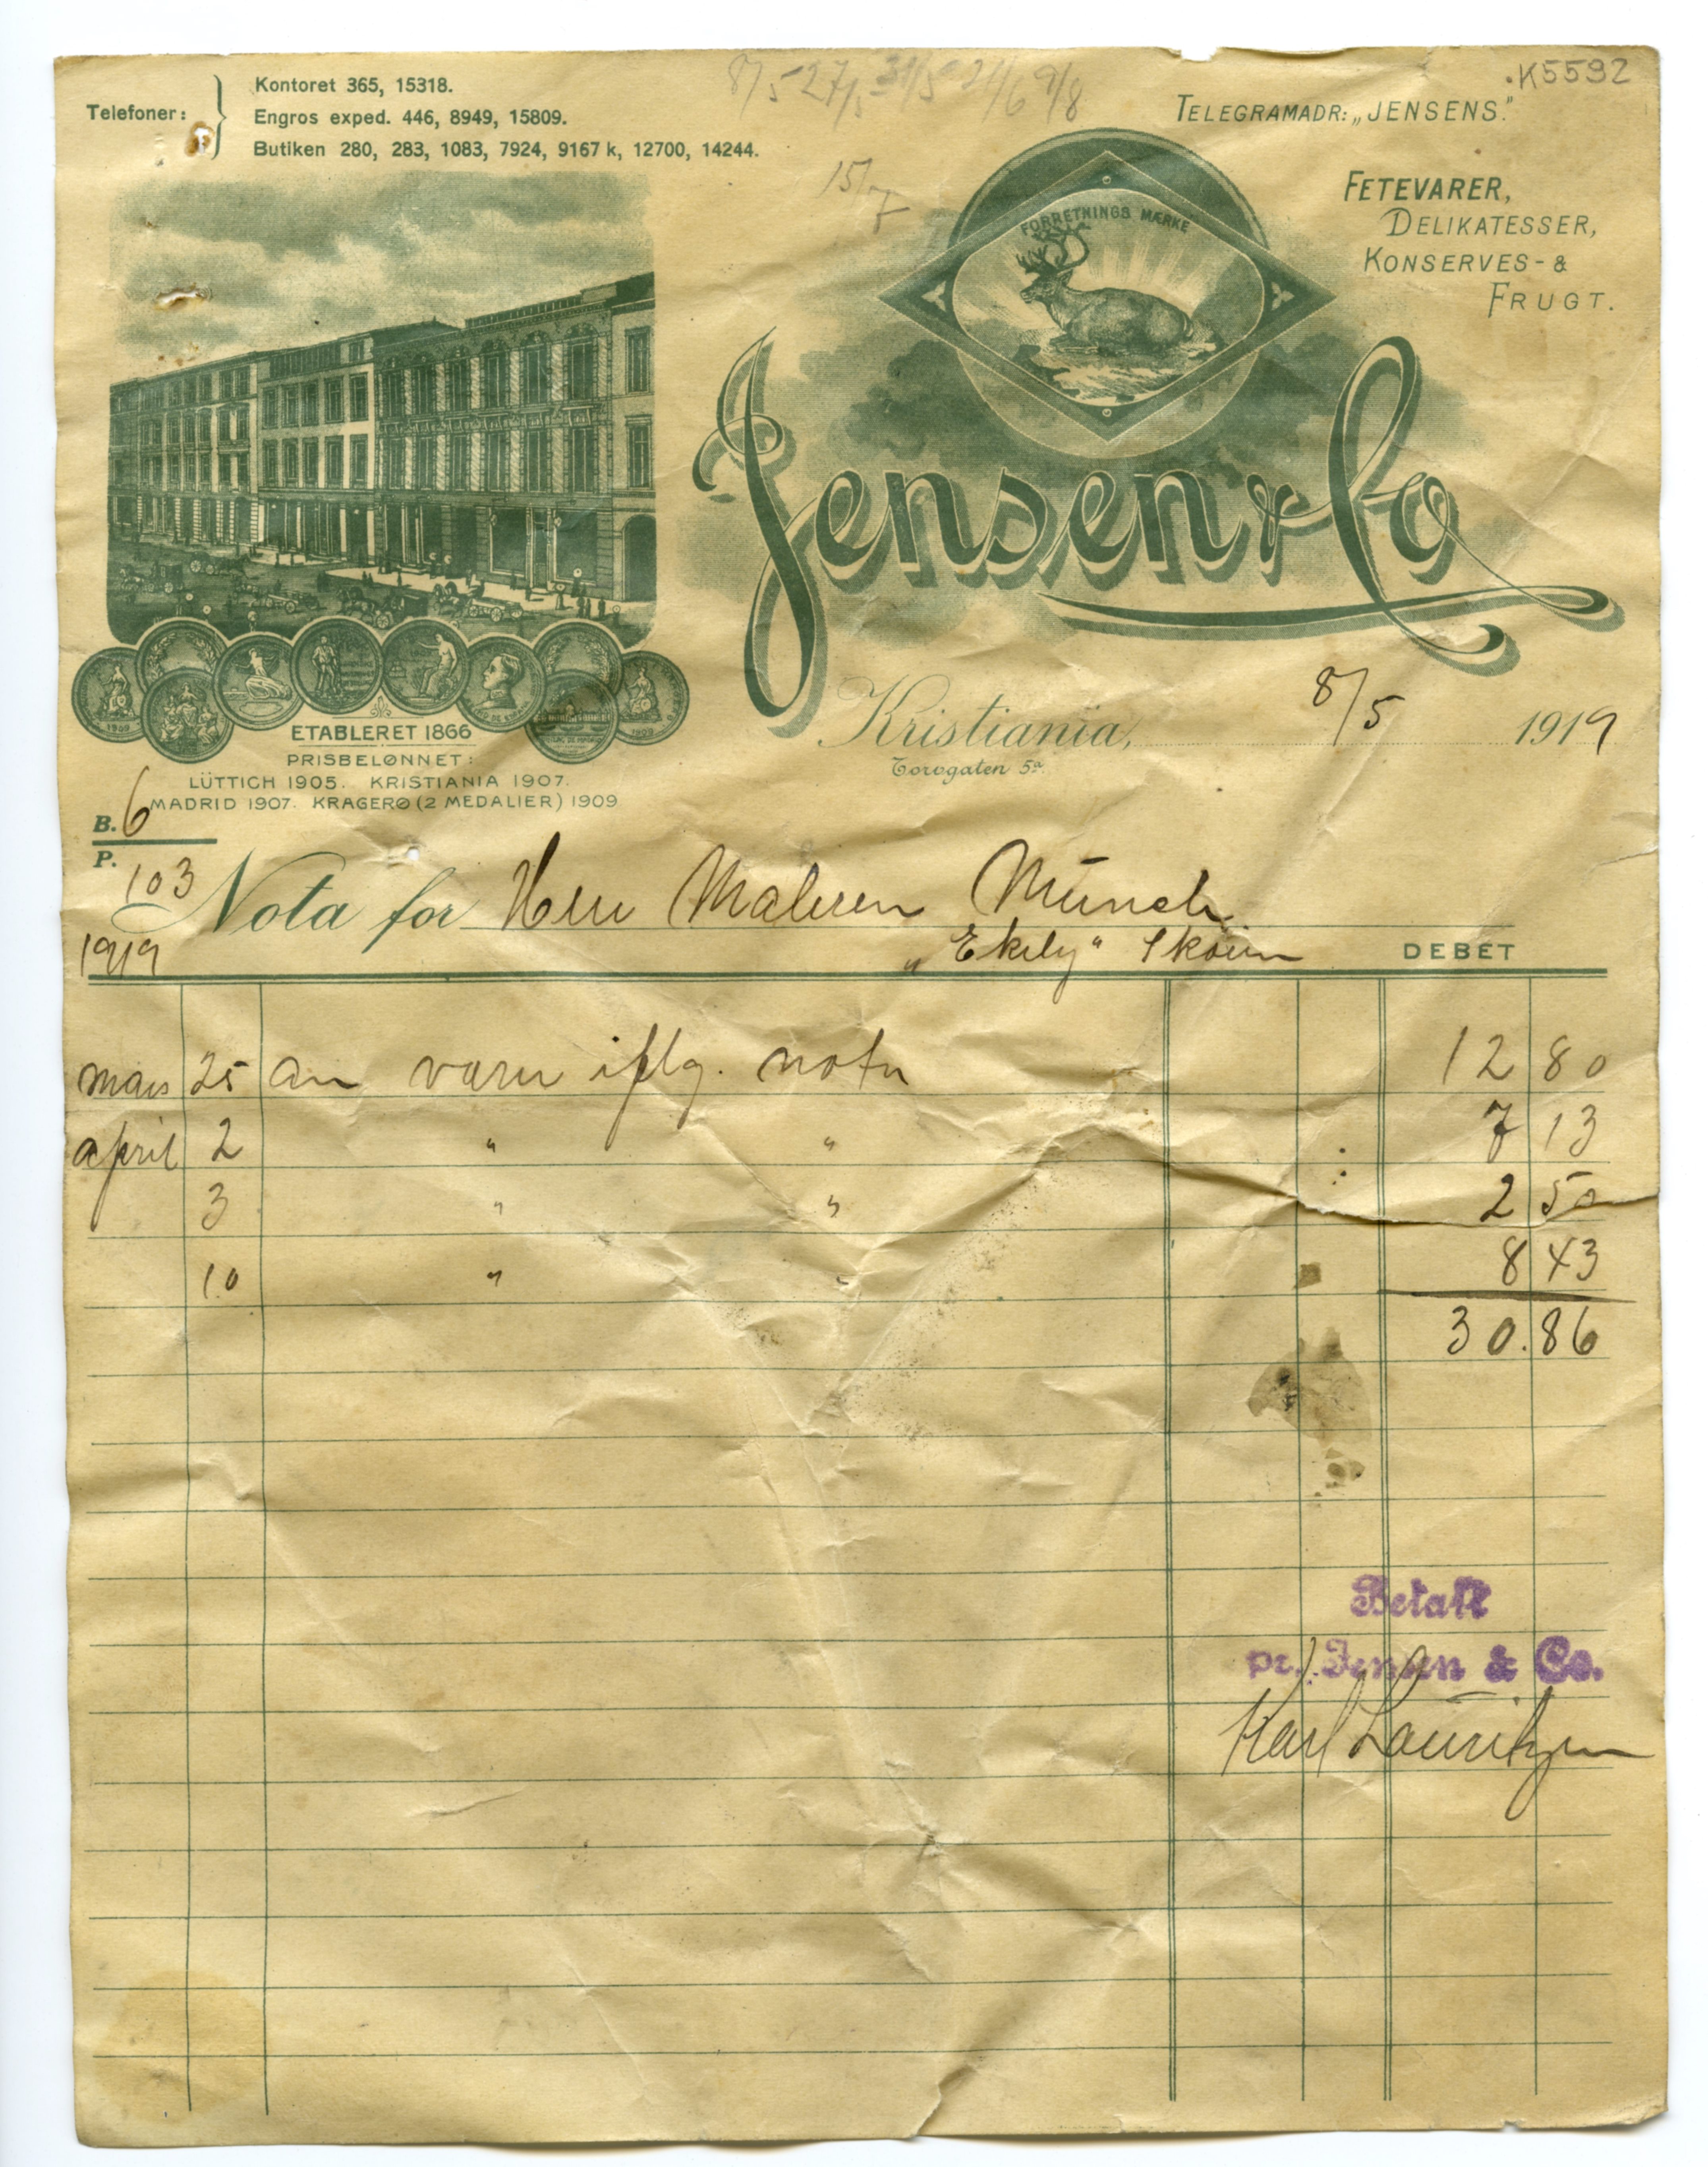 8/5 27/5 31/5 24/6 9/8
K5592
Telefoner:
Kontoret 365, 15318.
Engros exped. 446, 8949, 15809.
Butiken 280, 283, 1083, 7924, 9167 k, 12700, 14244.
TELEGRAMADR: „JENSENS."
15/7
FETEVARER,
DELIKATESSER,
KONSERVES- &
FRUGT.
FORRETNINGS MÆRKE
Jensen & Co
Kristiania, 8/5 1919
Torvgaten 5a.
1909
1909
ETABLERET 1866
PRISBELØNNET:
LÜTTICH 1905. KRISTIANIA 1907.
MADRID 1907. KRAGERØ (2 MEDALIER) 1909
B. 6
P. 103
Nota for Herr Maleren Munch
"Ekely" Skøien
1919
DEBET
mars 25 an varer iflg. nota 12 80
april 2 " " 7 13
3 " " 2 50
10 " " 8 43
30.86
Betalt
pr. Jensen & Co.
Karl Lauritzen